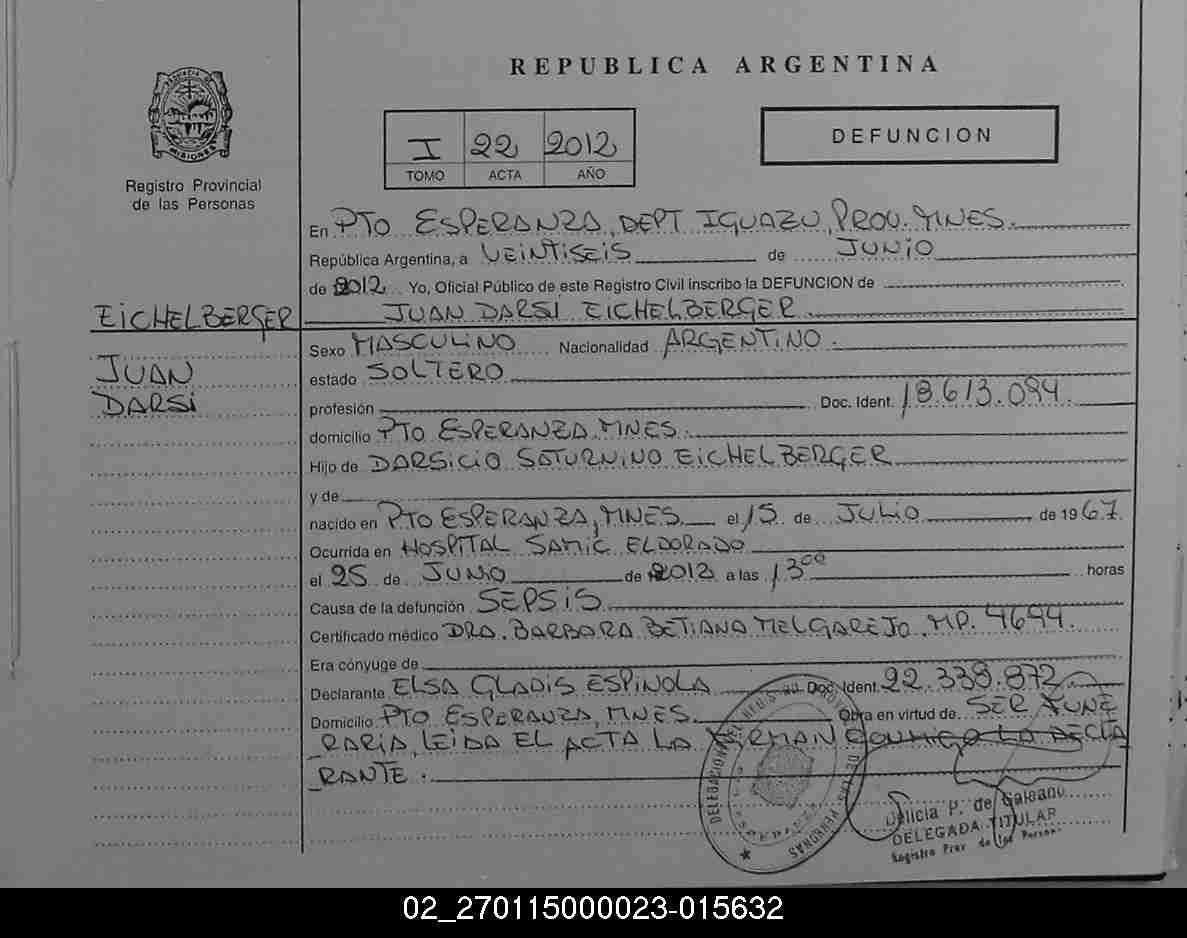 REPUBLICA ARGENTINA
PROVINCIA DE MISIONES
Registro Provincial
de las Personas
I 22 2012
TOMO ACTA AÑO
DEFUNCION
En PTO ESPERANZA, DEPT IGUAZU, PROV. MNES.
República Argentina, a VEINTISEIS de JUNIO
de 2012 Yo, Oficial Público de este Registro Civil inscribo la DEFUNCION de
EICHELBERGER JUAN DARSI EICHELBERGER
JUAN
DARSI
Sexo MASCULINO Nacionalidad ARGENTINO.
estado SOLTERO
profesión Doc. Ident. 18.613.094.
domicilio PTO ESPERANZA. MNES.
Hijo de DARSICIO SATURNINO EICHELBERGER
y de
nacido en PTO ESPERANZA, MNES. el 15 de JULIO de 1967.
Ocurrida en HOSPITAL SAMIC ELDORADO
el 25 de JUNIO de 2012 a las 13⁰⁰ horas
Causa de la defunción SEPSIS
Certificado médico DRA. BARBARA BETIANA MELGAREJO. MP. 4694.
Era cónyuge de
Declarante ELSA GLADIS ESPINOLA Doc. Ident. 22.338.872
Domicilio PTO ESPERANZA, MNES. Obra en virtud de SER FUNE
RARIA, LEIDA EL ACTA LA FIRMAN CONMIGO LA DECLA
RANTE.
DELEGACION DE LAS PERSONAS
Delicia P. de Galeano
DELEGADA TITULAR
Registro Prov. de las Personas
02_270115000023-015632